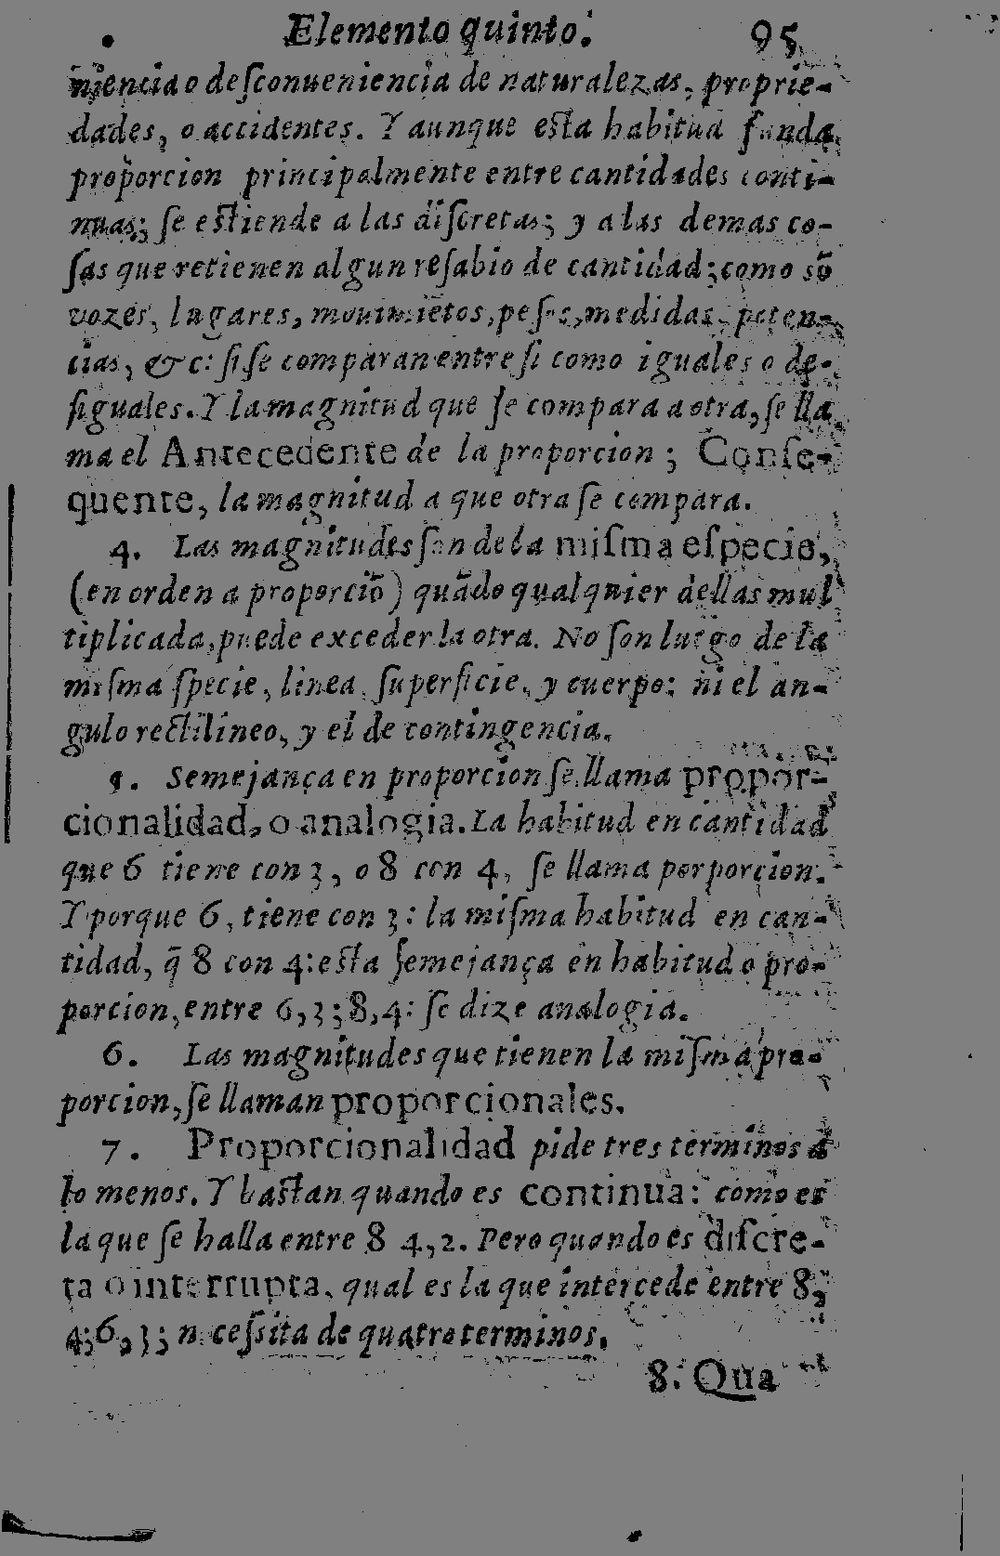 Elemento quinto. 95
niencia o desconueniencia de naturalezas, proprie-
dades, o accidentes. Y aunque esta habitud funda
proporcion principalmente entre cantidades conti-
nuas; se estiende a las discretas; y a las demas co-
sas que retienen algun resabio de cantidad; como sō
vozes, lugares, mouimiētos, pesos, medidas, poten-
cias, &c: si se comparan entre si como iguales o de-
siguales. Y la magnitud que se compara a otra, se lla
ma el Antecedente de la proporcion; Conse-
quente, la magnitud a que otra se compara.
4. Las magnitudes son de la misma especie,
(en orden a proporciō) quādo qualquier dellas mul
tiplicada, puede exceder la otra. No son luego de la
misma specie, linea, superficie, y cuerpo: ni el an-
gulo rectilineo, y el de contingencia.
5. Semejança en proporcion se llama propor-
cionalidad, o analogia. La habitud en cantidad
que 6 tiene con 3, o 8 con 4, se llama porporcion.
Y porque 6, tiene con 3: la misma habitud en can-
tidad, q̄ 8 con 4: esta semejança en habitud o pro-
porcion, entre 6, 3; 8, 4: se dize analogia.
6. Las magnitudes que tienen la misma pro-
porcion, se llaman proporcionales.
7. Proporcionalidad pide tres terminos a
lo menos. Y bastan quando es continua: como es
la que se halla entre 8 4, 2. Pero quando es discre-
ta o interrupta, qual es la que intercede entre 8,
4; 6, 3; necessita de quatro terminos.
8. Qua